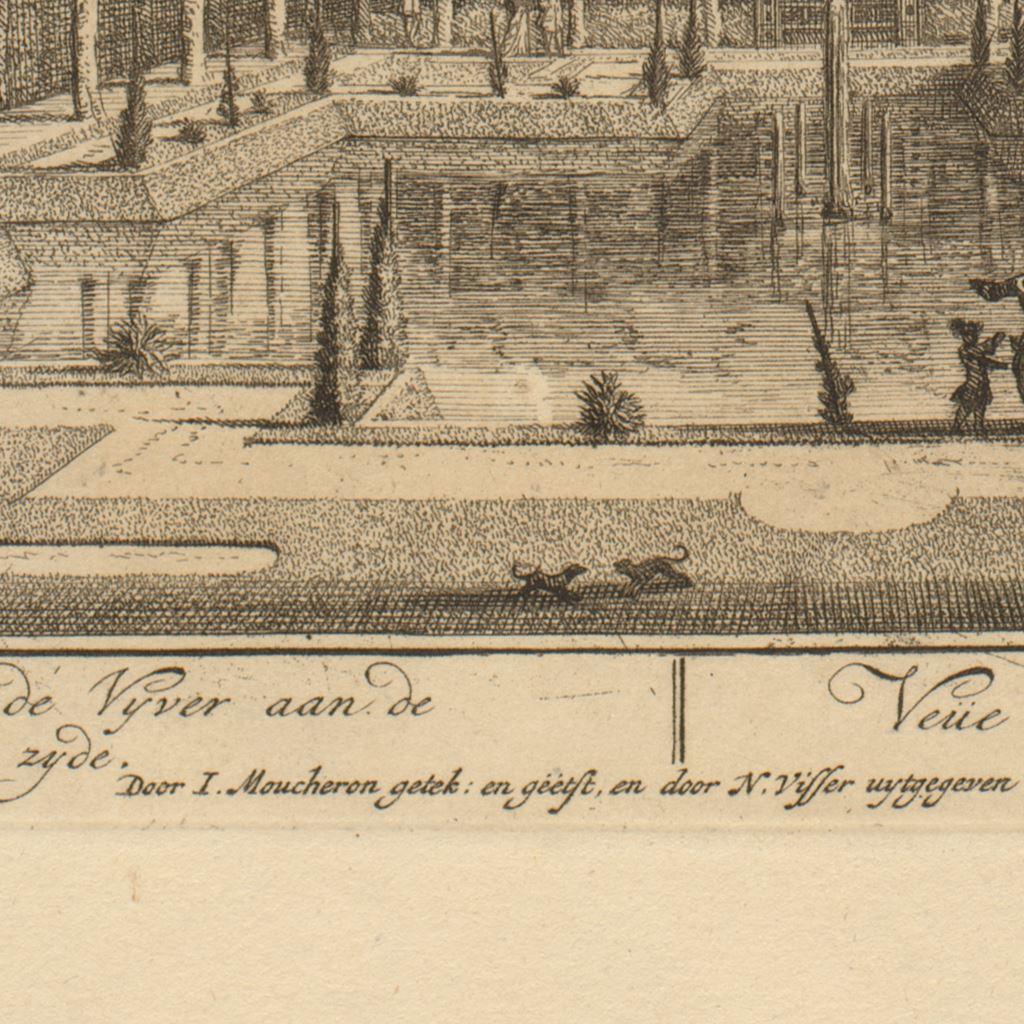 de Vyver aan de
zyde.
Veüe
Door I. Moucheron getek: en gëëtst, en door N. Visser uytgegeven